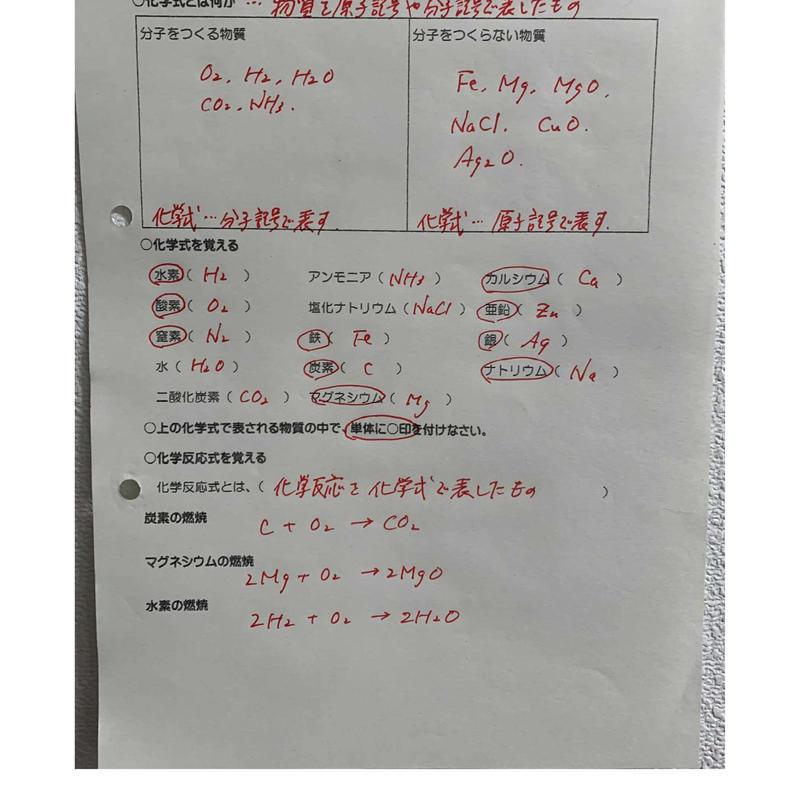 ○化学式とは何か … 物質を原子記号や分子記号で表したもの
分子をつくる物質
O₂, H₂, H₂O
CO₂, NH₃.
化学式…分子記号で表す.
分子をつくらない物質
Fe, Mg, MgO,
NaCl, CuO.
Ag₂O.
化学式… 原子記号で表す.
○化学式を覚える
水素( H₂ ) アンモニア( NH₃ ) カルシウム( Ca )
酸素( O₂ ) 塩化ナトリウム( NaCl ) 亜鉛( Zn )
窒素( N₂ ) 鉄( Fe ) 銀( Ag )
水( H₂O ) 炭素( C ) ナトリウム( Na )
二酸化炭素( CO₂ ) マグネシウム( Mg )
○上の化学式で表される物質の中で、単体に○印を付けなさい。
○化学反応式を覚える
化学反応式とは、( 化学反応を化学式で表したもの )
炭素の燃焼 C + O₂ → CO₂
マグネシウムの燃焼 2Mg + O₂ → 2MgO
水素の燃焼 2H₂ + O₂ → 2H₂O